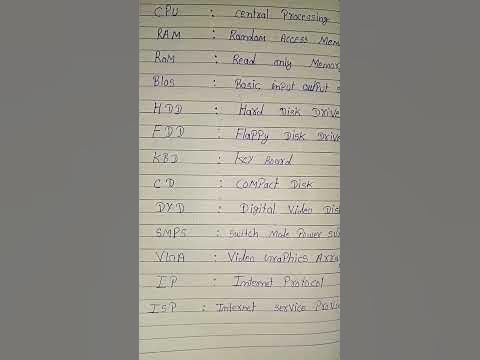 CPU : Central Processing
RAM : Ramdom Access Mem
RoM : Read only Memory
BIos : Basic input output s
HDD : Hard Disk Drive
FDD : Flappy Disk Drive
KBD : Key Board
CD : Compact Disk
DVD : Digital Video Disk
SMPS : Switch Mode Power su
VGA : Video Graphics Array
IP : Internet Protocol
ISP : Internet service Provi